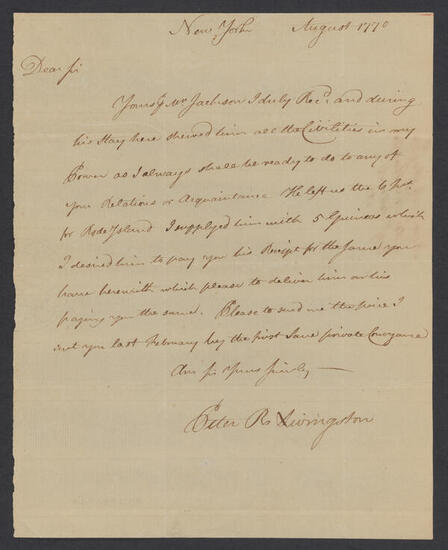 New York August 1770
Dear Sir
Yours pr Mr Jackson I duly Recd. and during
his Stay here shewed him all the Civilities in my
Power as I always shall be ready to do to any of
your Relations or Acquaintance He left us the 6
for Rode Island I supplyed him with 5 Guineas which
I desired him to pay you his Receipt for the same you
have herewith which please to deliver him on his
paying you the same. Please to send me the
I
last February by the first Save private Conveyance
Am Sr Yours Sincerly
Peter R Livingston